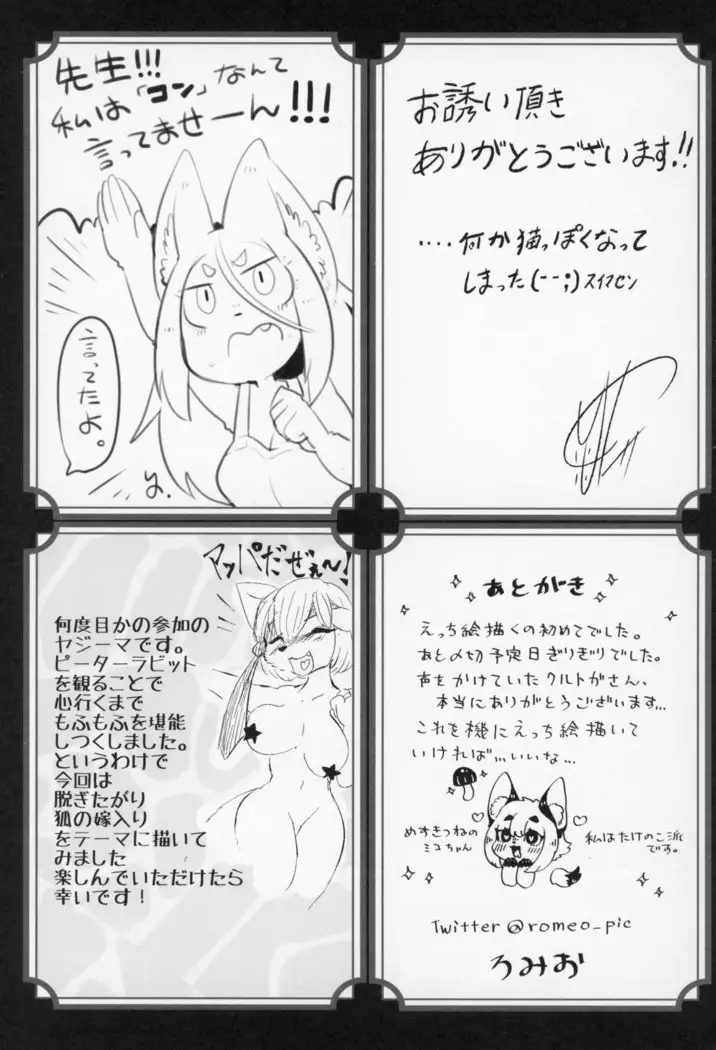 先生!!!
私は「コン」なんて
言ってませーん!!!
言ってたよ。
お誘い頂き
ありがとうございます!!
....何か猫っぽくなって
しまった(--;)スイマセン
マッパだぜぇ〜!
何度目かの参加の
ヤジーマです。
ピーターラビット
を観ることで
心行くまで
もふもふを堪能
しつくしました。
というわけで
今回は
脱ぎたがり
狐の嫁入り
をテーマに描いて
みました
楽しんでいただけたら
幸いです!
あとがき
えっち絵描くの初めてでした。
あと〆切予定日ぎりぎりでした。
声をかけていたクルトがさん、
本当にありがとうございます...
これを機にえっち絵描いて
いければ...いいな...
めすきつねの
ミコちゃん
私はたけのこ派
です。
Twitter@romeo_pic
ろみお